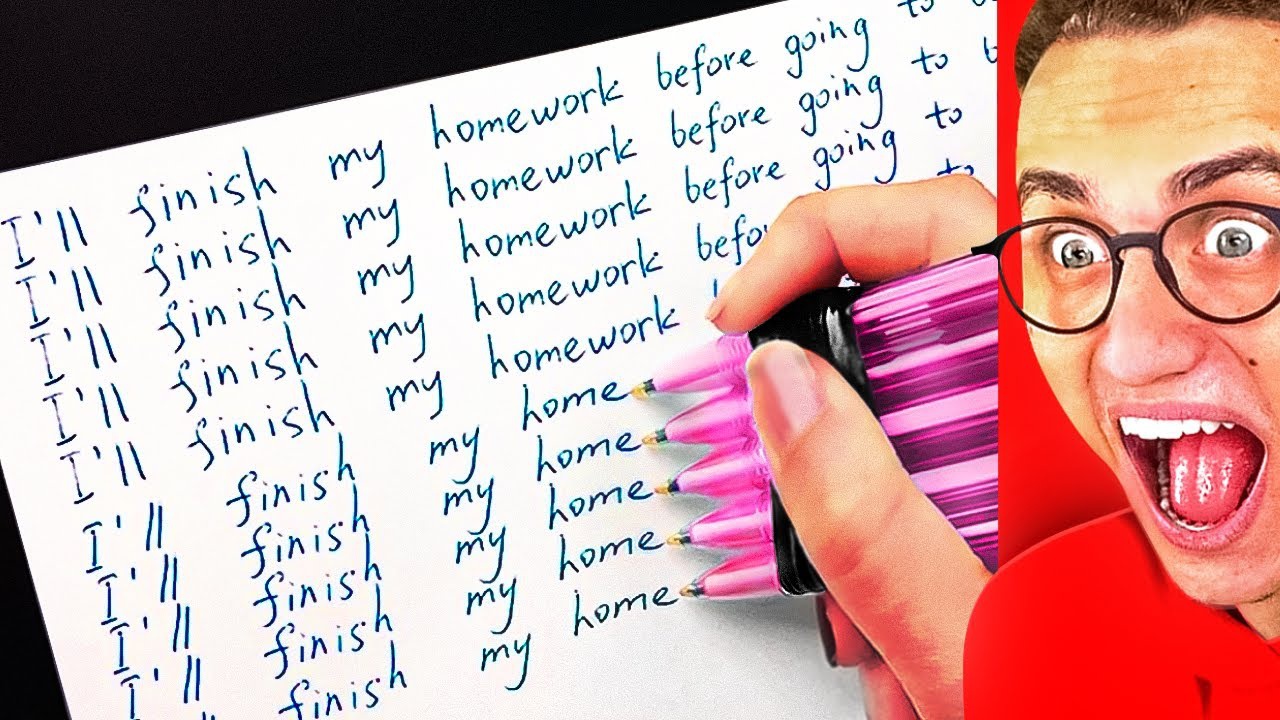 I'll finish my homework before going to
I'll finish my homework before going to
I'll finish my homework before going to
I'll finish my homework befo to
I'll finish my homework
I'll finish my home
I'll finish my home
I'll finish my home
I'll finish my home
finish my home